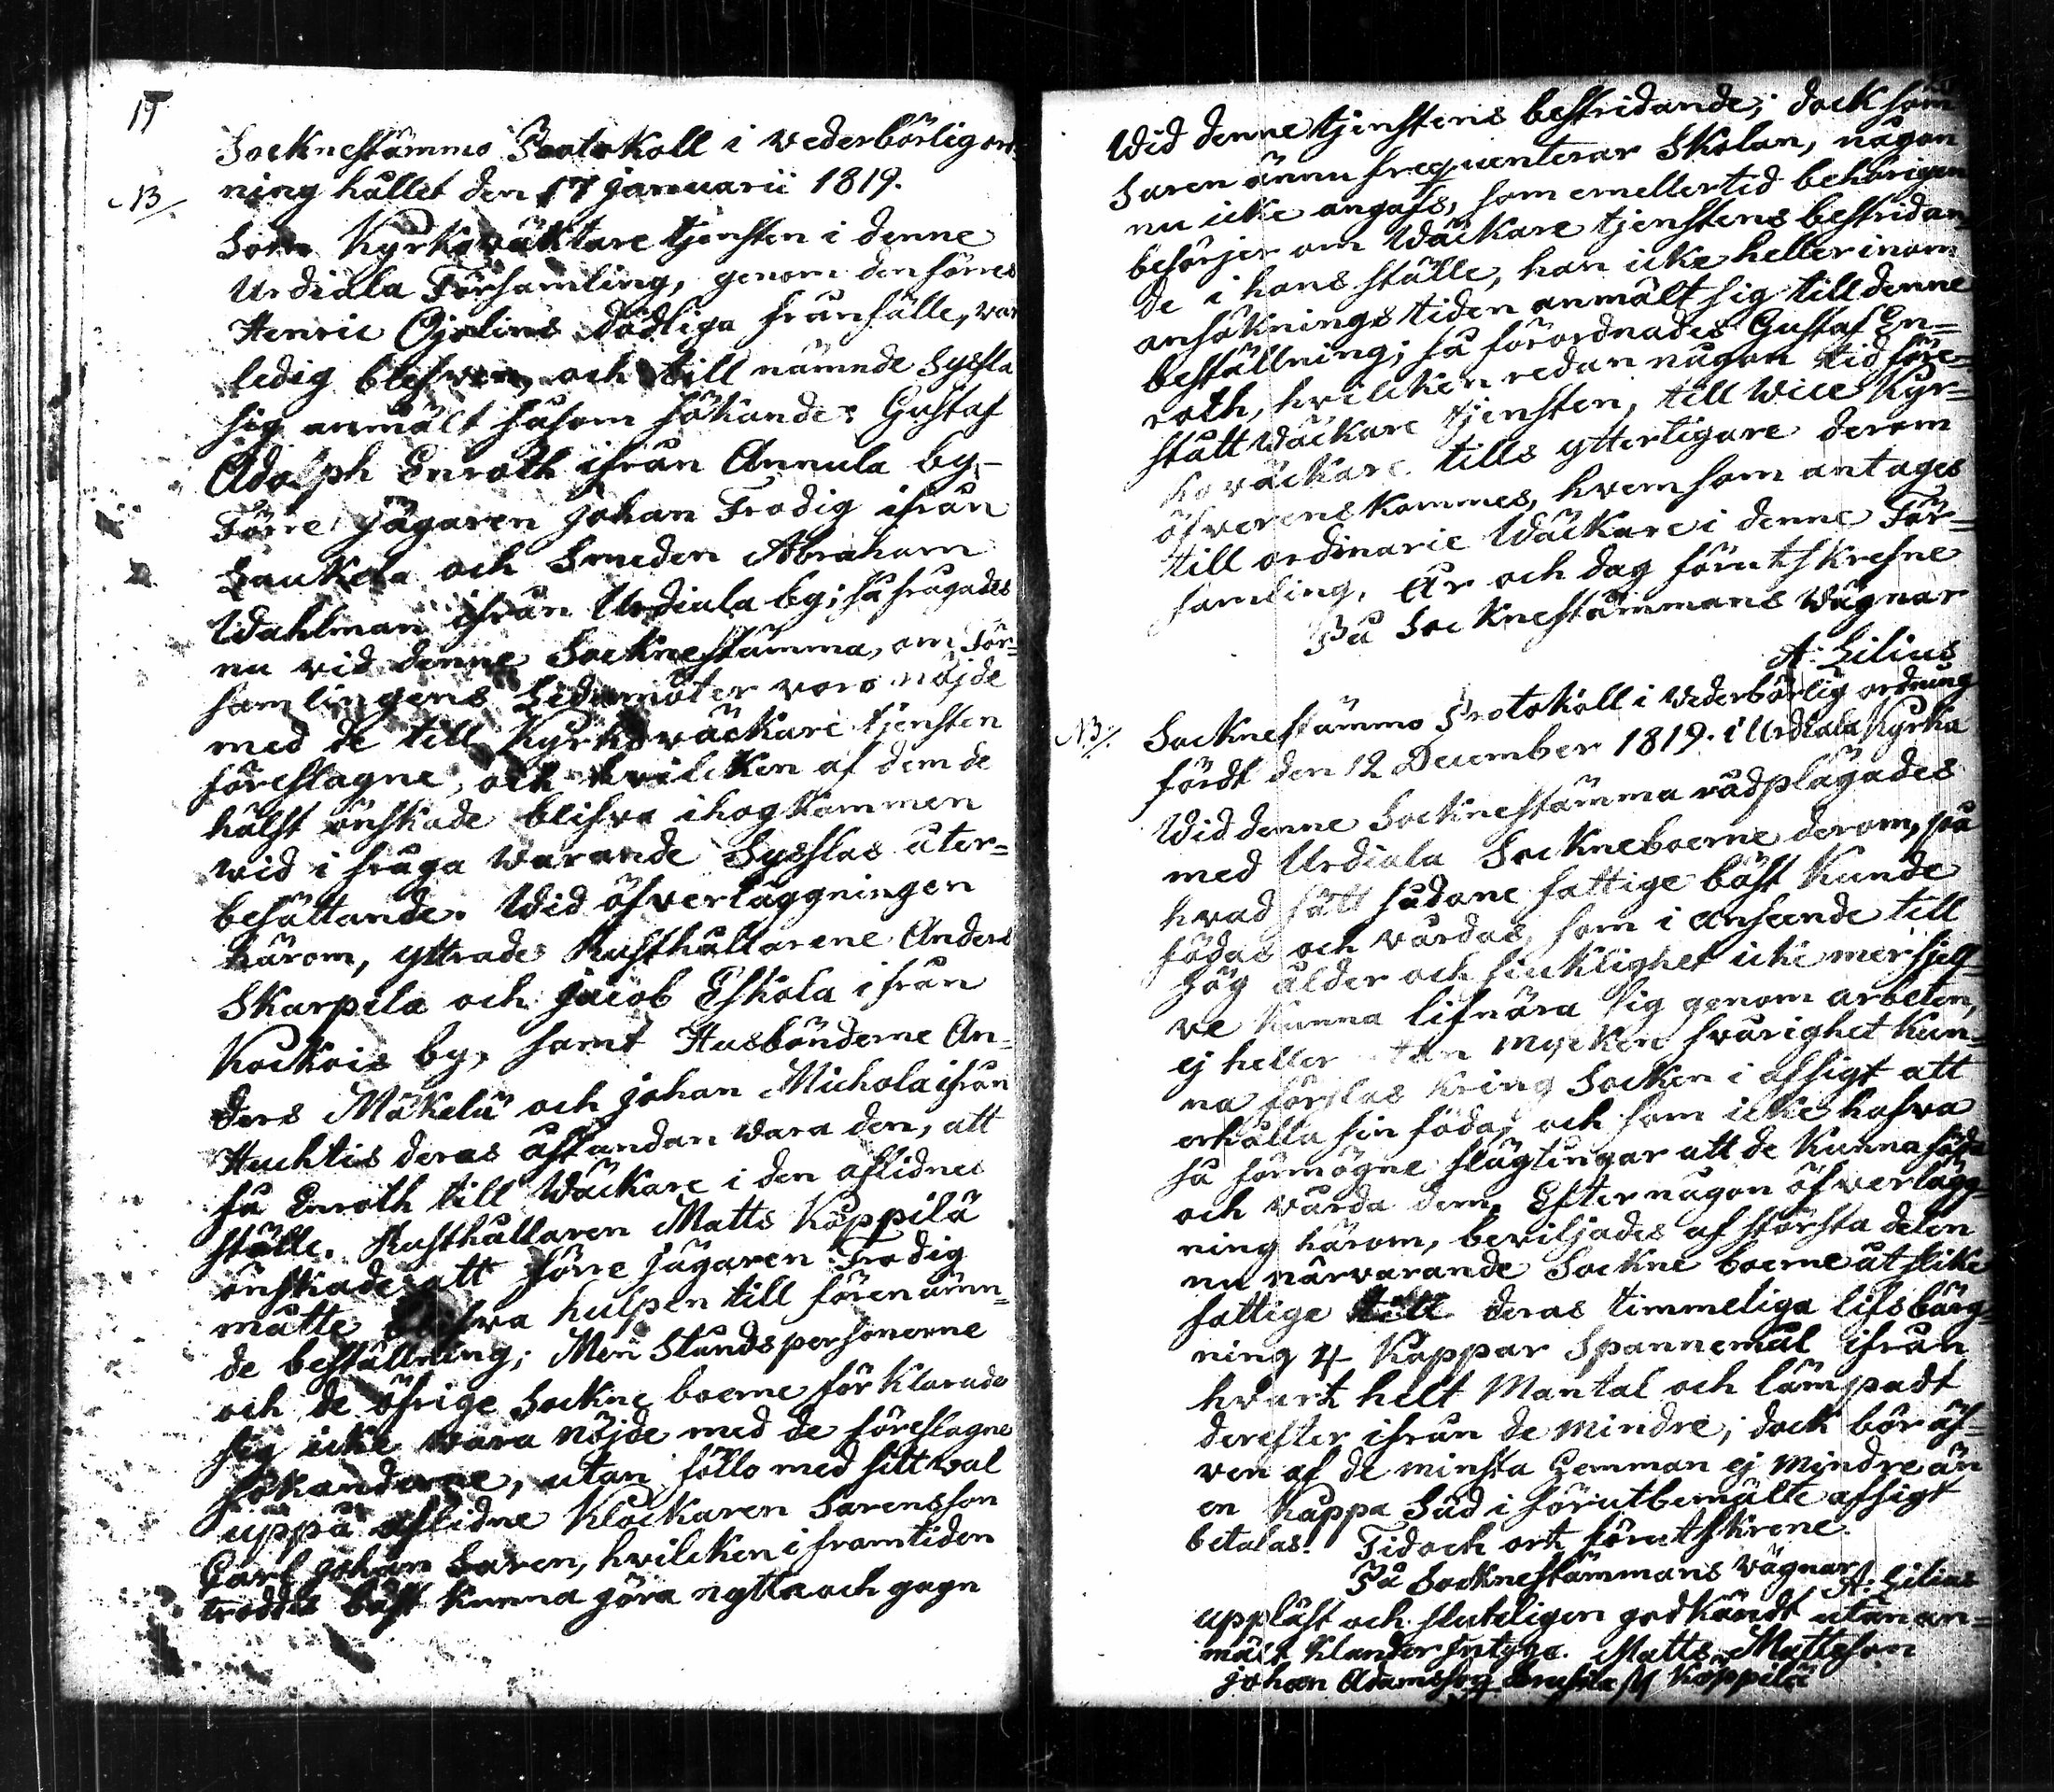 19
Socknestämmo Protokoll i vederbörlig ord¬
NB/ ning hållit den 17 Januarii 1819.
Som Kyrkoväktare tjensten i denne
Urdiala Församling, genom den förres
Henric Cjelins dödliga frånfälle, var
ledig blefven, och till nämnde Syssla
sig anmält såsom sökande: Gustaf
Adolph Enroth ifrån Annula by,
Förre Jägaren Johan Frodig ifrån
Laukela och Smeden Abraham
Wahlman ifrån Urdiala by; så frågades
nu vid denne Socknestämma, om För=
samlingens Ledamöter voro nöjde
med de till Kyrkoväckare tjensten
föreslagne, och hvilcken af dem de
hälst önskade blifva ihogkommen
wid i fråga warande Sysslas åter=
besättande. Wid öfverläggningen
härom, yttrade Rusthållarene Anders
Skarpila och Jacob Eskola ifrån
Kockois by, samt Husbönderne An=
ders Mäkelä och Johan Michola ifrån
Huchtis deras åstundan wara den, att
få Enroth till Wäckare i den aflidnes
ställe. Rusthållaren Matts Köppilä
önskade att förre Jägaren Frodig
måtte blifva hulpen till förenämn=
de beställning; Men Ståndspersonerne
och de öfrige Sockne boerne förklarade
sig icke vara nöjde med de föreslagne
sökanderne, utan föllo med sitt val
uppå aflidne Klockaren Sarensson
Carl Johan Saren, hvilcken i framtiden
troddes bäst kunna göra nytta och gagn
Wid denne tjenstens bestridande; dock som
Saren ännu frequenterar Skolan, någon
nu icke angafs, som emellertid behörigen
besörjer om Wäckare tjenstens bestridan=
de i hans ställe, har icke heller inom
ansöknings tiden anmält sig till denne
beställning; så förordnades Gustaf En=
roth, hvilcken redan någon tid före=
stått Wäckare tjensten, till Wice Kyr=
koväckare tills ytterligare derom
öfverenskommes, hvem som antages
till ordinarie Wäckare i denne För=
samling. År och dag förutskrefne
På Socknestämmans Wägnar
A: Lilius
NB/. Socknestämmo Protokoll i Wederbörlig ordning
fördt den 12 December 1819. i Urdiala Kyrka
Wid denne Socknestämma rådplägades
med Urdiala Sockneboerne derom, på
hvad sätt sådane fattige bäst kunde
födas och vårdas, som i anseende till
hög ålder och siucklighet icke mer sjelf=
ve kunna lifnära sig genom arbeten,
ej heller utan mycken svårighet kun=
na förslas kring Socken i afsigt att
erhålla sin föda, och som icke hafva
så förmögne slägtingar att de kunna föda
och vårda dem. Efter någon öfverlägg=
ning härom, beviljades af största delen
nu närvarande Sockne boerne åt slike
fattige till deras timmeliga lifsbärg=
ning 4 Kappar Spannemål ifrån
hvart helt Mantal och lämpadt
derefter ifrån de mindre; dock bör äf=
ven af de minsta Hemman ej mindre än
en Kappa Säd i förutbemälte afsigt
betalas. Tid och ort förutskrene.
På Socknestämmans vägnar
A: Lilius
uppläst och sluteligen godkändt utan an=
mält klander intyga. Matts Mattsson
Johan Adamsson Köppilä